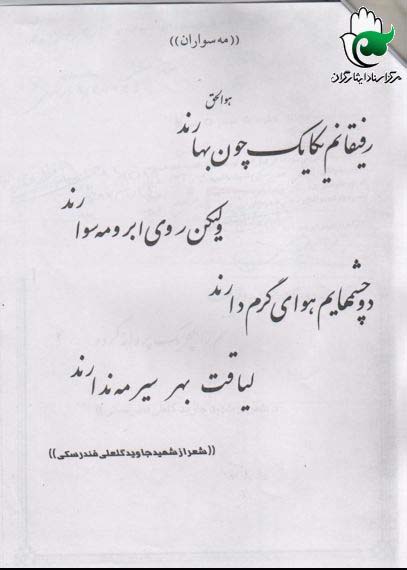 مرکز اسناد ایثارگران
((مه سواران))
هوالحق
رفیقانم یکایک چون بهارند
ولیکن روی ابر و مه سوارند
دو چشمهایم هوای گرم دارند
لیاقت بهر سیر مه ندارند
((شعر از شهید جاوید گلعلی فندرسکی))